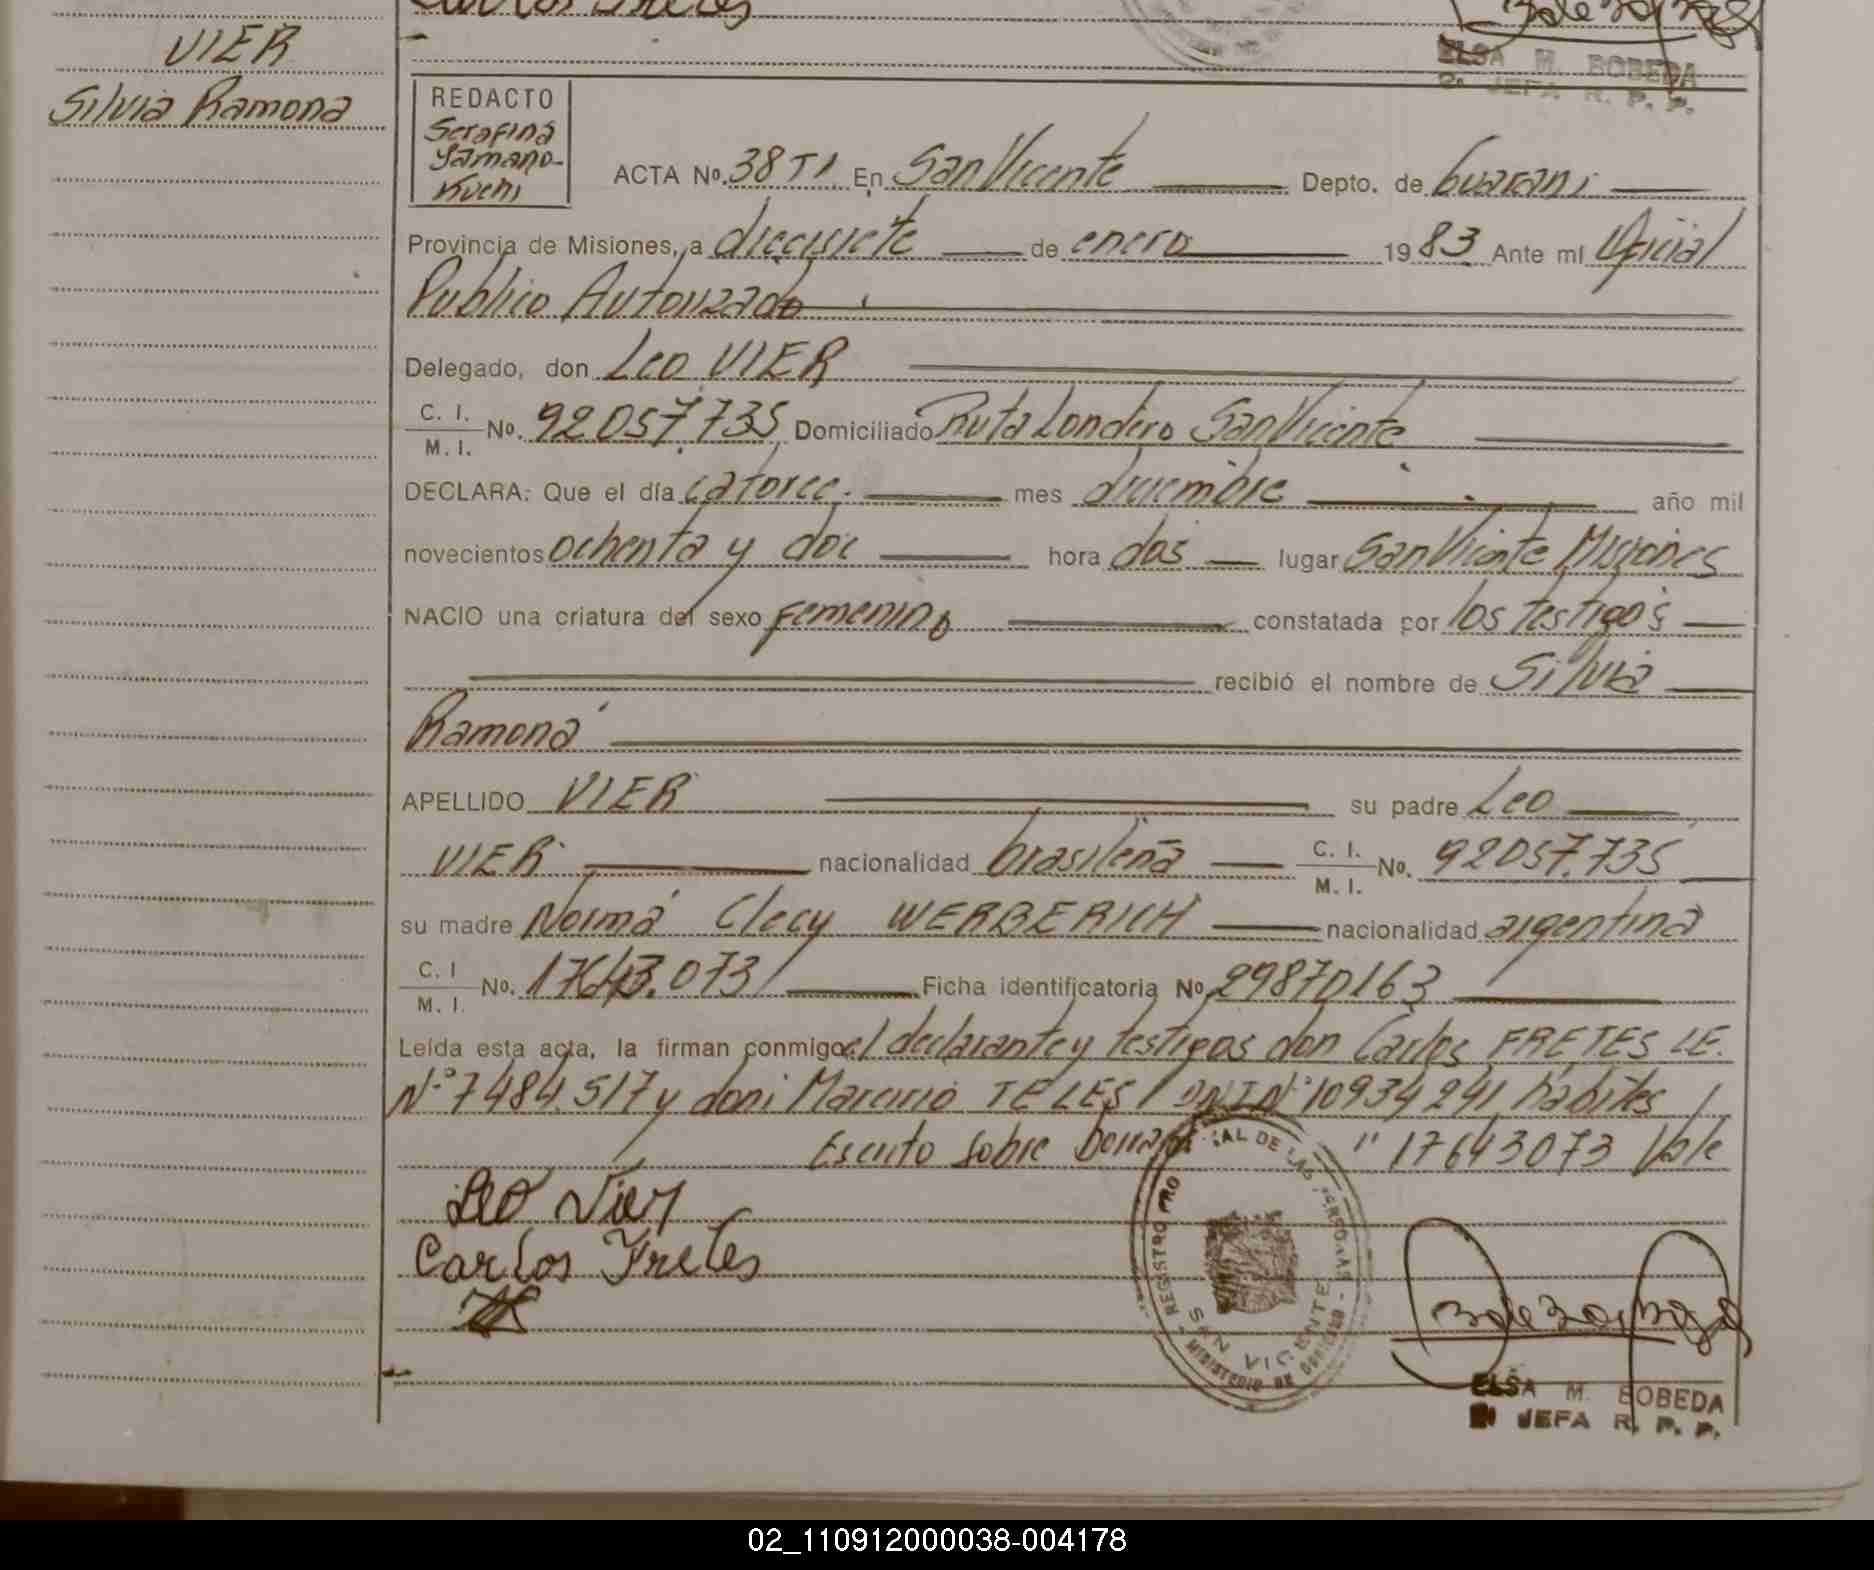 Carlos Fretes
ELSA M. BOBEDA
JEFA R. P. P.
VIER
Silvia Ramona
REDACTO
Serafina
Yamano-
Kuchi
ACTA Nº. 38 T1 En San Vicente Depto. de Guarani
Provincia de Misiones, a diecisiete de enero 1983 Ante mí Oficial
Publico Autorizado
Delegado, don Leo VIER
C. I. M. I. No. 92057.735 Domiciliado Ruta Londero San Vicente
DECLARA: Que el día catorce. mes diciembre año mil
novecientos ochenta y dos hora dos lugar San Vicente Misiones
NACIO una criatura del sexo femenino constatada por los testigos
recibió el nombre de Silvia
Ramona
APELLIDO VIER su padre Leo
VIER nacionalidad brasileña C. I. M. I. No. 92057.735
su madre Norma Clecy WERBERICH nacionalidad argentina
C. I M. I. No. 17643.073 Ficha identificatoria Nº 29870163
Leída esta acta, la firman conmigo el declarante y testigos don Carlos FRETES LE.
Nº 7484.517 y don: Marcirio TELES DNI Nº 10934241 habites
Escrito sobre borrado "17643073 Vale
Leo Vier
Carlos Fretes
REGISTRO PRO AL DE LAS PERSONAS
SAN VICENTE
MINISTERIO DE GOBIERNO
ELSA M. BOBEDA
JEFA R. P. P.
02_110912000038-004178